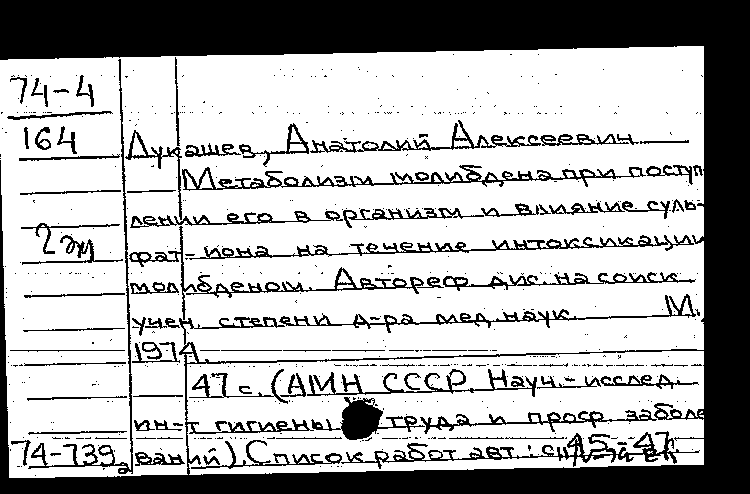 74-4
164
Лукашев, Анатолий Алексеевич
Метаболизм молибдена при поступ
лении его в организм и влияние суль-
2 эк
фат-иона на течение интоксикации
молибденом. Автореф. дис. на соиск.
учен. степени д-ра мед. наук. М.,
1974.
47 с. (АМН СССР. Науч.-исслед.
ин-т гигиены труда и проф. заболе
74-739а ваний). Список работ авт.: с. 45-47